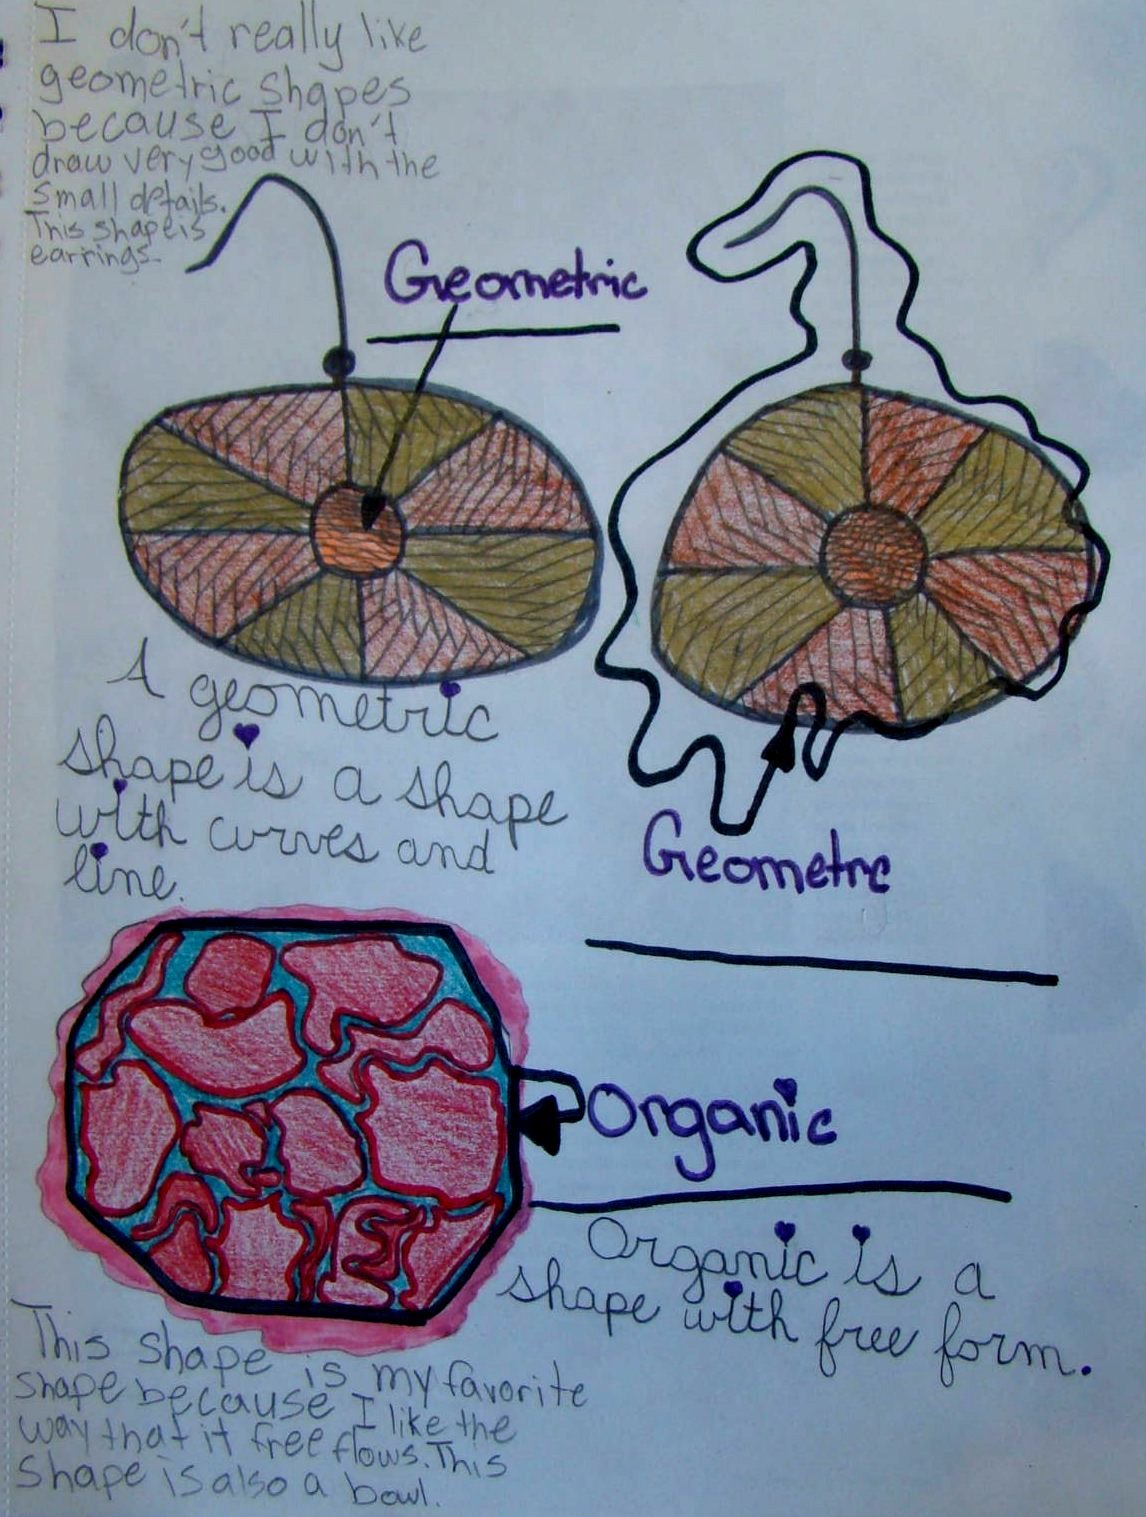 I don't really like
geometric shapes
because I don't
draw very good with the
small details.
This shape is
earrings.
Geometric
A geometric
shape is a shape
with curves and
line.
Geometrc
Organic
Organic is a
shape with free form.
This shape is my favorite
shape because I like the
way that it free flows. This
shape is also a bowl.